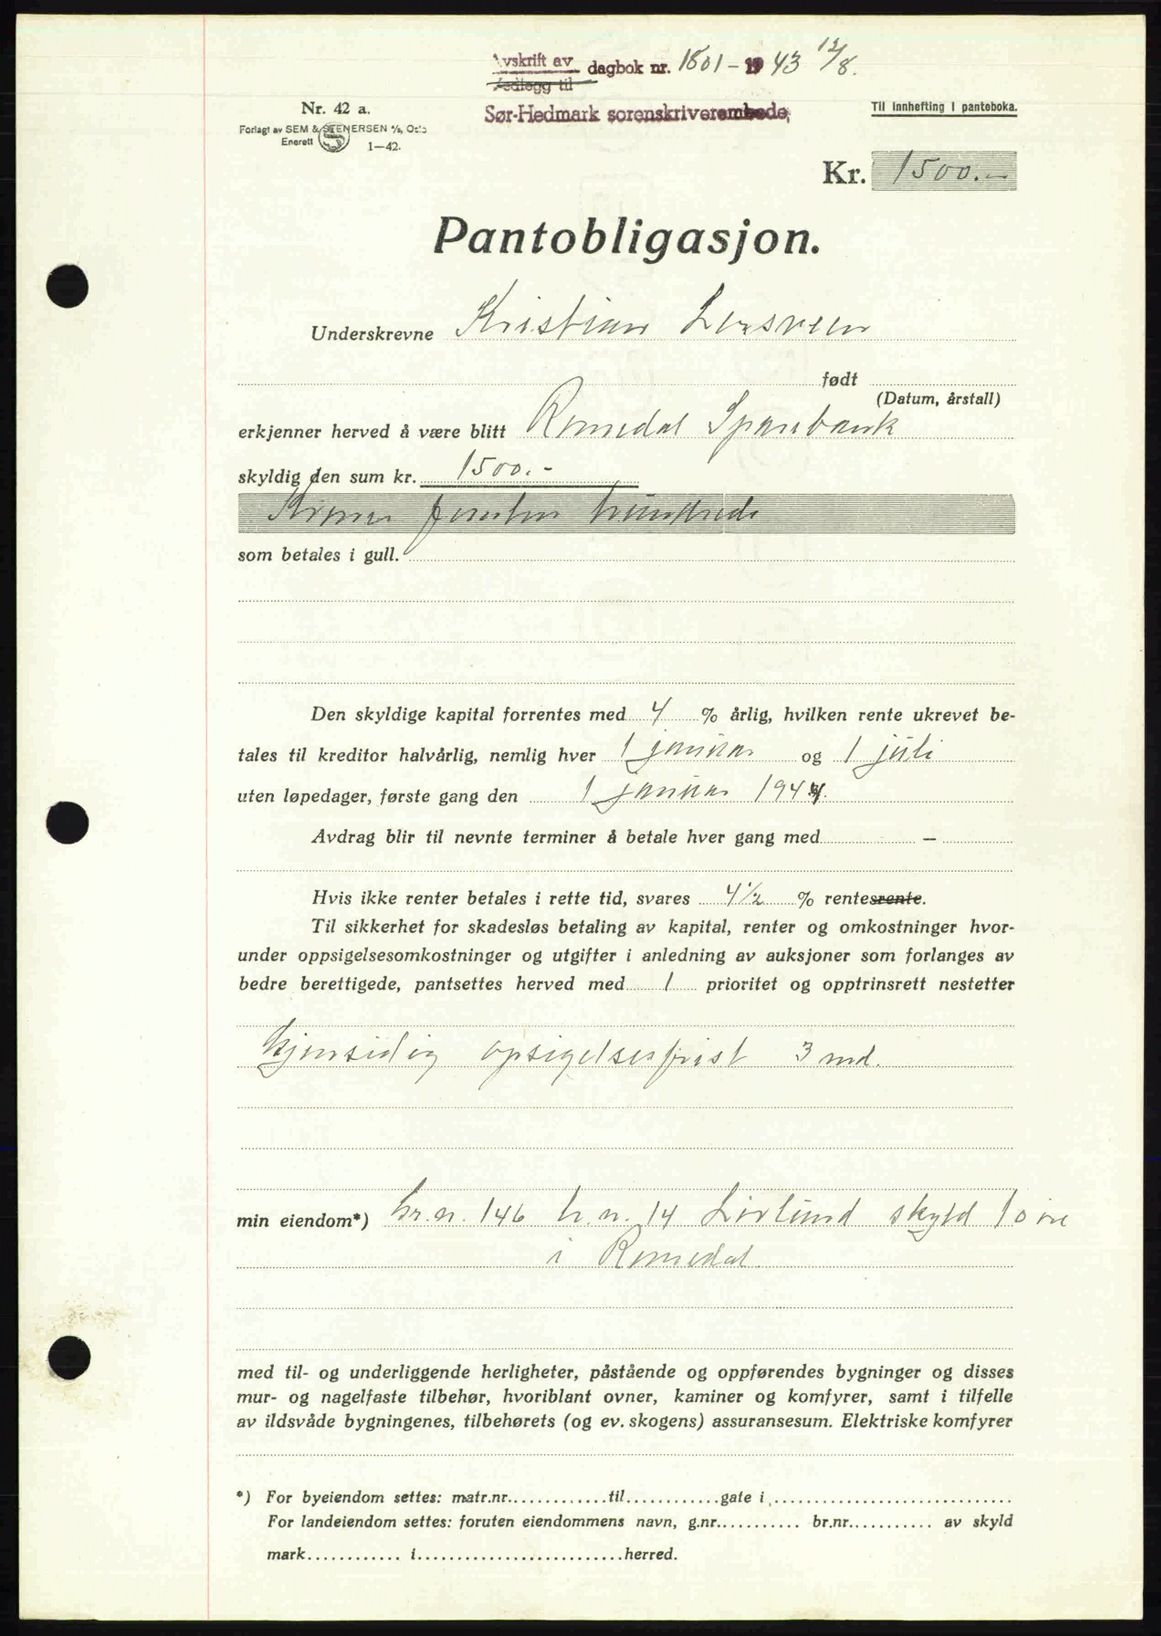 Avskrift av dagbok nr. 1501 - 1943 12/8.
Vedlegg til
Sør-Hedmark sorenskriverembede,
Nr. 42 a.
Til innhefting i panteboka.
Forlagt av SEM & STENERSEN A/s, Oslo
Enerett 1—42.
Kr. 1500.-
Pantobligasjon.
Underskrevne Kristian
født
(Datum, årstall)
erkjenner herved å være blitt Romedal Sparebank
skyldig den sum kr. 1500.-
Kroner femten hundrede
som betales i gull.
Den skyldige kapital forrentes med 4 % årlig, hvilken rente ukrevet be-
tales til kreditor halvårlig, nemlig hver 1 januar og 1 juli
uten løpedager, første gang den 1 januar 1944.
Avdrag blir til nevnte terminer å betale hver gang med —
Hvis ikke renter betales i rette tid, svares 4 1/2 % rentesrente.
Til sikkerhet for skadesløs betaling av kapital, renter og omkostninger hvor-
under oppsigelsesomkostninger og utgifter i anledning av auksjoner som forlanges av
bedre berettigede, pantsettes herved med 1 prioritet og opptrinsrett nestetter
Gjensidig opsigelsesfrist 3 md.
min eiendom*) br.n. 146 14 skyld 10 øre
i Romedal
med til- og underliggende herligheter, påstående og oppførendes bygninger og disses
mur- og nagelfaste tilbehør, hvoriblant ovner, kaminer og komfyrer, samt i tilfelle
av ildsvåde bygningenes, tilbehørets (og ev. skogens) assuransesum. Elektriske komfyrer
*) For byeiendom settes: matr.nr.............til............gate i ..............................
For landeiendom settes: foruten eiendommens navn, g.nr........... br.nr........... av skyld
mark............ i..........................herred.